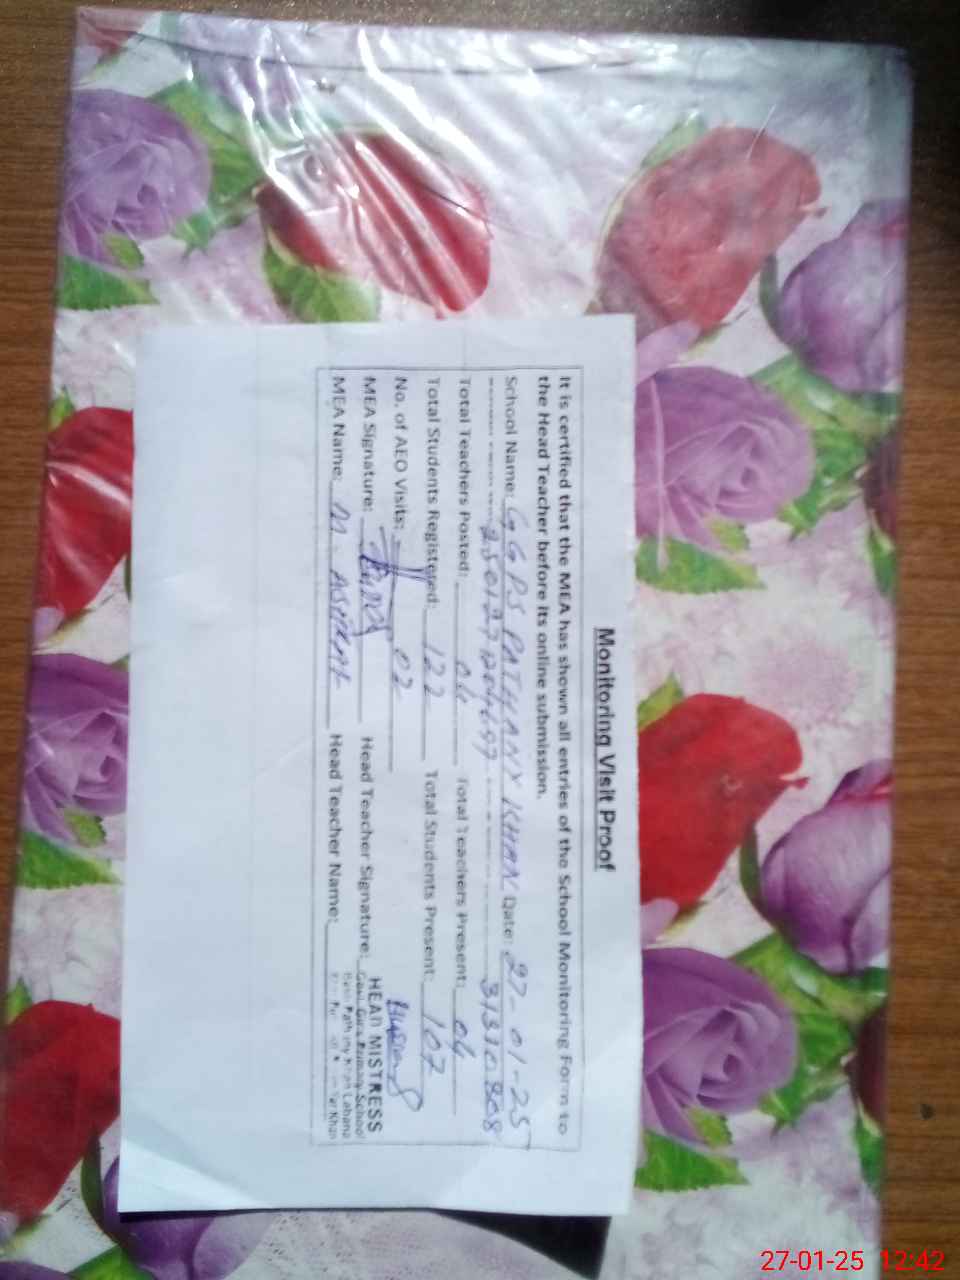 Monitoring Visit Proof
It is certified that the MEA has shown all entries of the School Monitoring Form to
the Head Teacher before its online submission.
School Name: GGPS PATHANY KHAN Date: 27-01-25
31330808
Total Teachers Posted: 04 Total Teachers Present: 04
Total Students Registered: 122 Total Students Present: 107
No. of AEO Visits: 02
MEA Signature: Head Teacher Signature:
HEAD MISTRESS
Govt. Girls Primary School
MEA Name: M. ASHRAF Head Teacher Name:
27-01-25 12:42